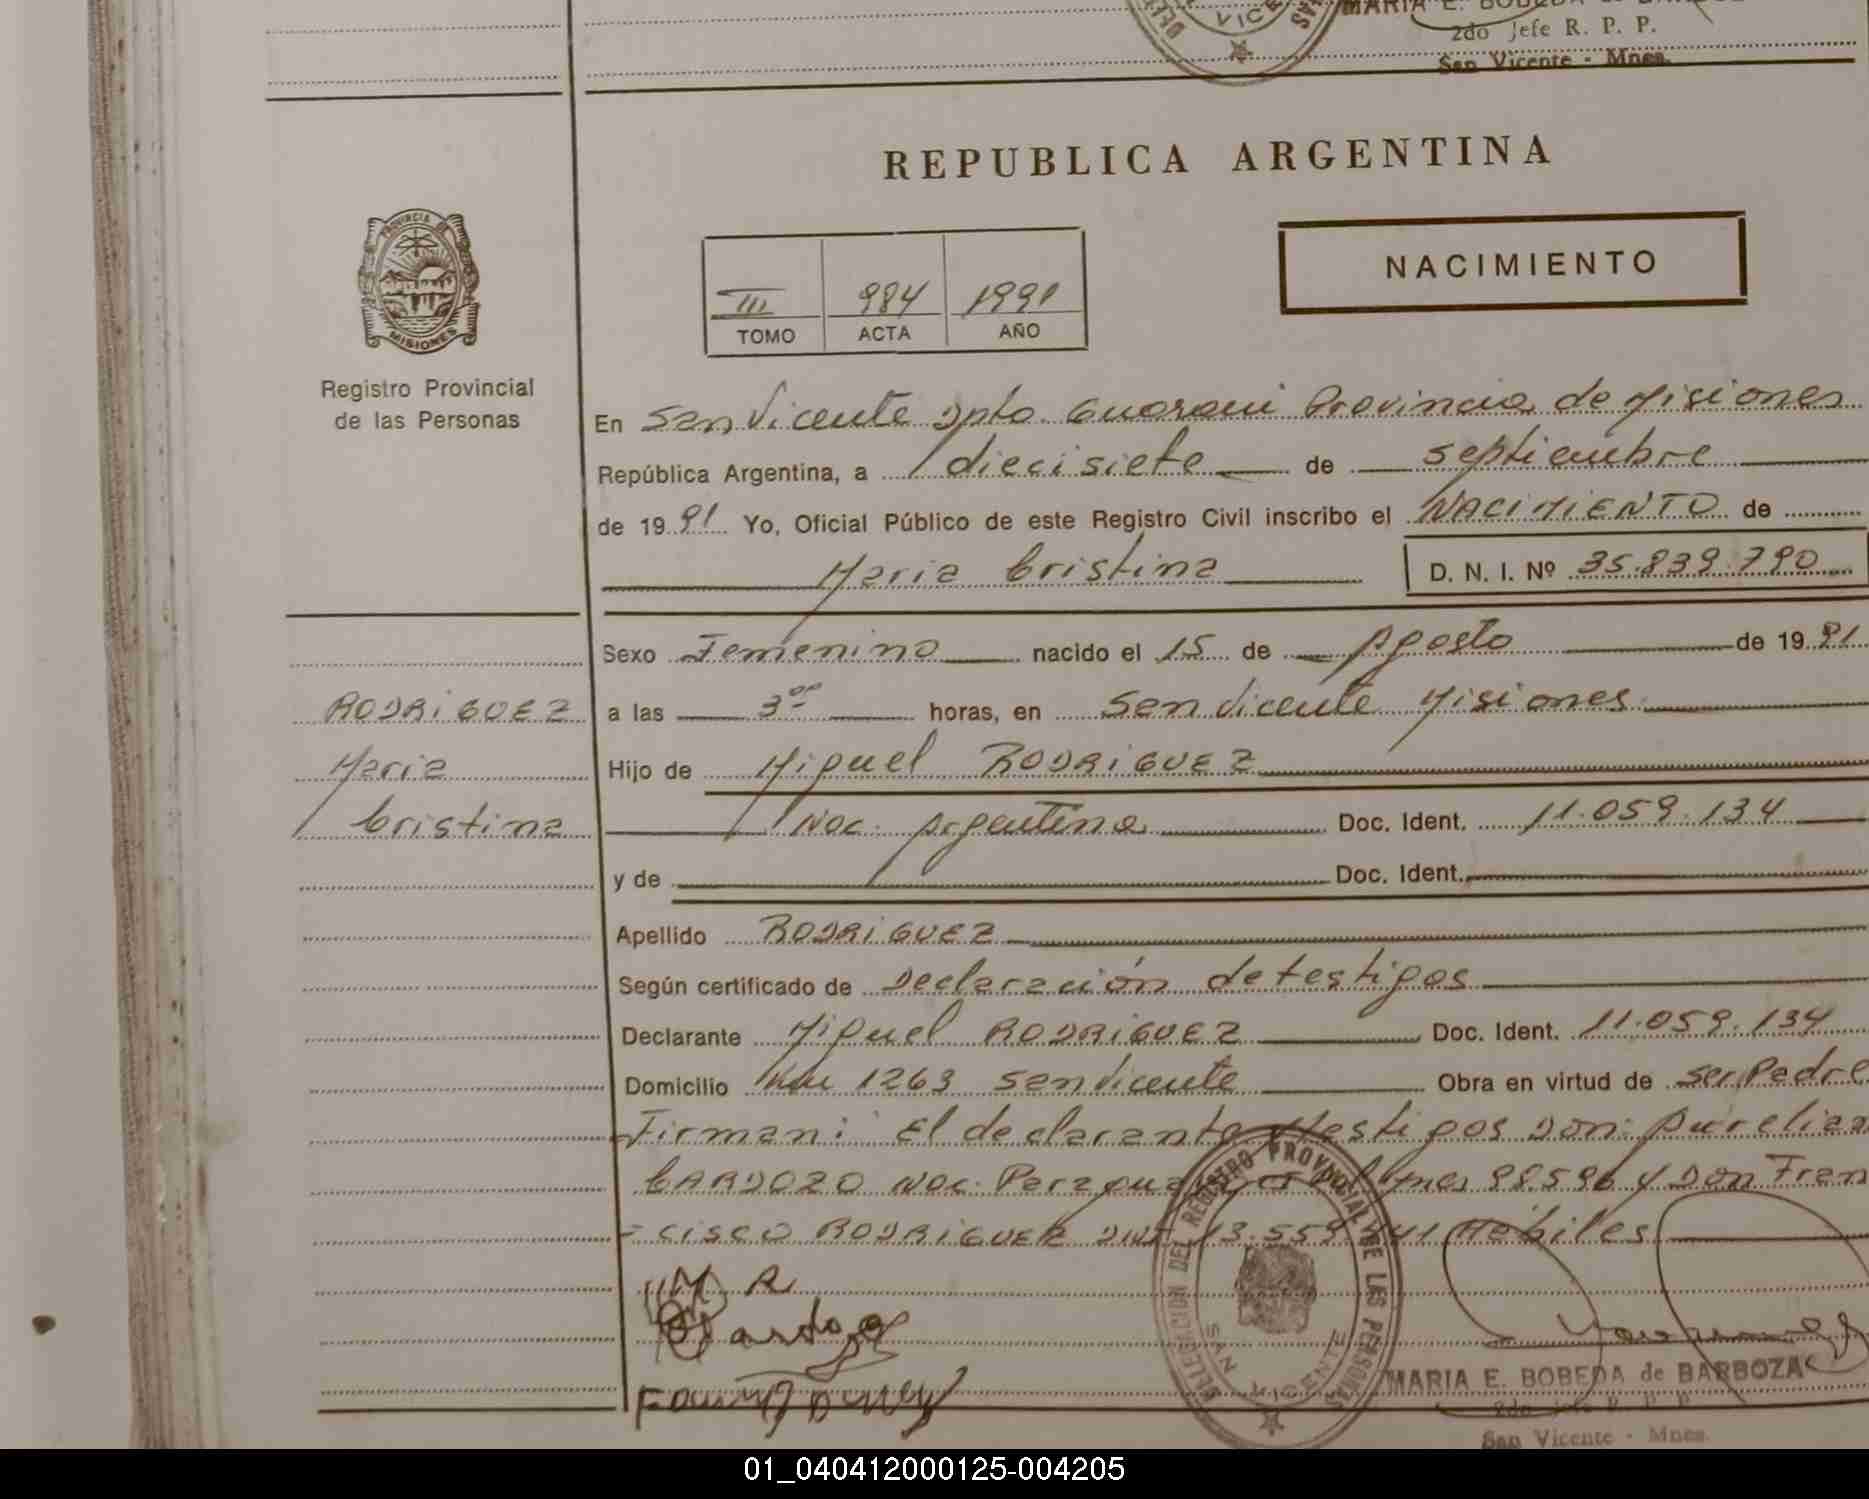 MARIA E. BOBEDA de BARBOZA
2do Jefe R. P. P.
San Vicente - Mnes.
REPUBLICA ARGENTINA
PROVINCIA DE
MISIONES
Registro Provincial
de las Personas
NACIMIENTO
III 984 1991
TOMO ACTA AÑO
En San Vicente Dpto. Guarani Provincia de Misiones
República Argentina, a diecisiete de septiembre
de 1991 Yo, Oficial Público de este Registro Civil inscribo el NACIMIENTO de
Maria Cristina D. N. I. Nº 35.839.790
Sexo Femenino nacido el 15 de Agosto de 1991
RODRIGUEZ
Maria
Cristina
a las 3ºº horas, en San Vicente Misiones
Hijo de Miguel RODRIGUEZ
Nac. Argentina Doc. Ident. 11.059.134
y de Doc. Ident.
Apellido RODRIGUEZ
Según certificado de Declaración de testigos
Declarante Miguel RODRIGUEZ Doc. Ident. 11.059.134
Domicilio Km 1263 San Vicente Obra en virtud de ser Padre
Firman: El declarante y testigos Don: Aurelian
CARDOZO Nac. Paraguayo 98596 y Don Fran
=cisco RODRIGUEZ DNI 13.559. 41 Hábiles
M R
Cardozo
DELEGACION DEL REGISTRO PROVINCIAL DE LAS PERSONAS
SAN VICENTE
MARIA E. BOBEDA de BARBOZA
2do Jefe R. P. P.
San Vicente - Mnes.
01_040412000125-004205